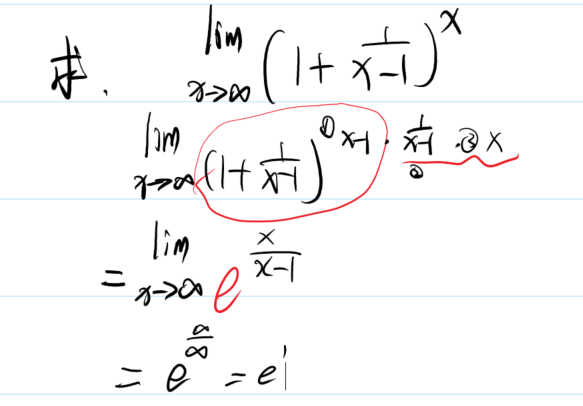 求. lim x→∞ (1+1/(x-1))^x
lim x→∞ (1+1/(x-1))^① x-1 · ② 1/(x-1) · ③ x
= lim x→∞ e^(x/(x-1))
= e^(∞/∞) = e^1